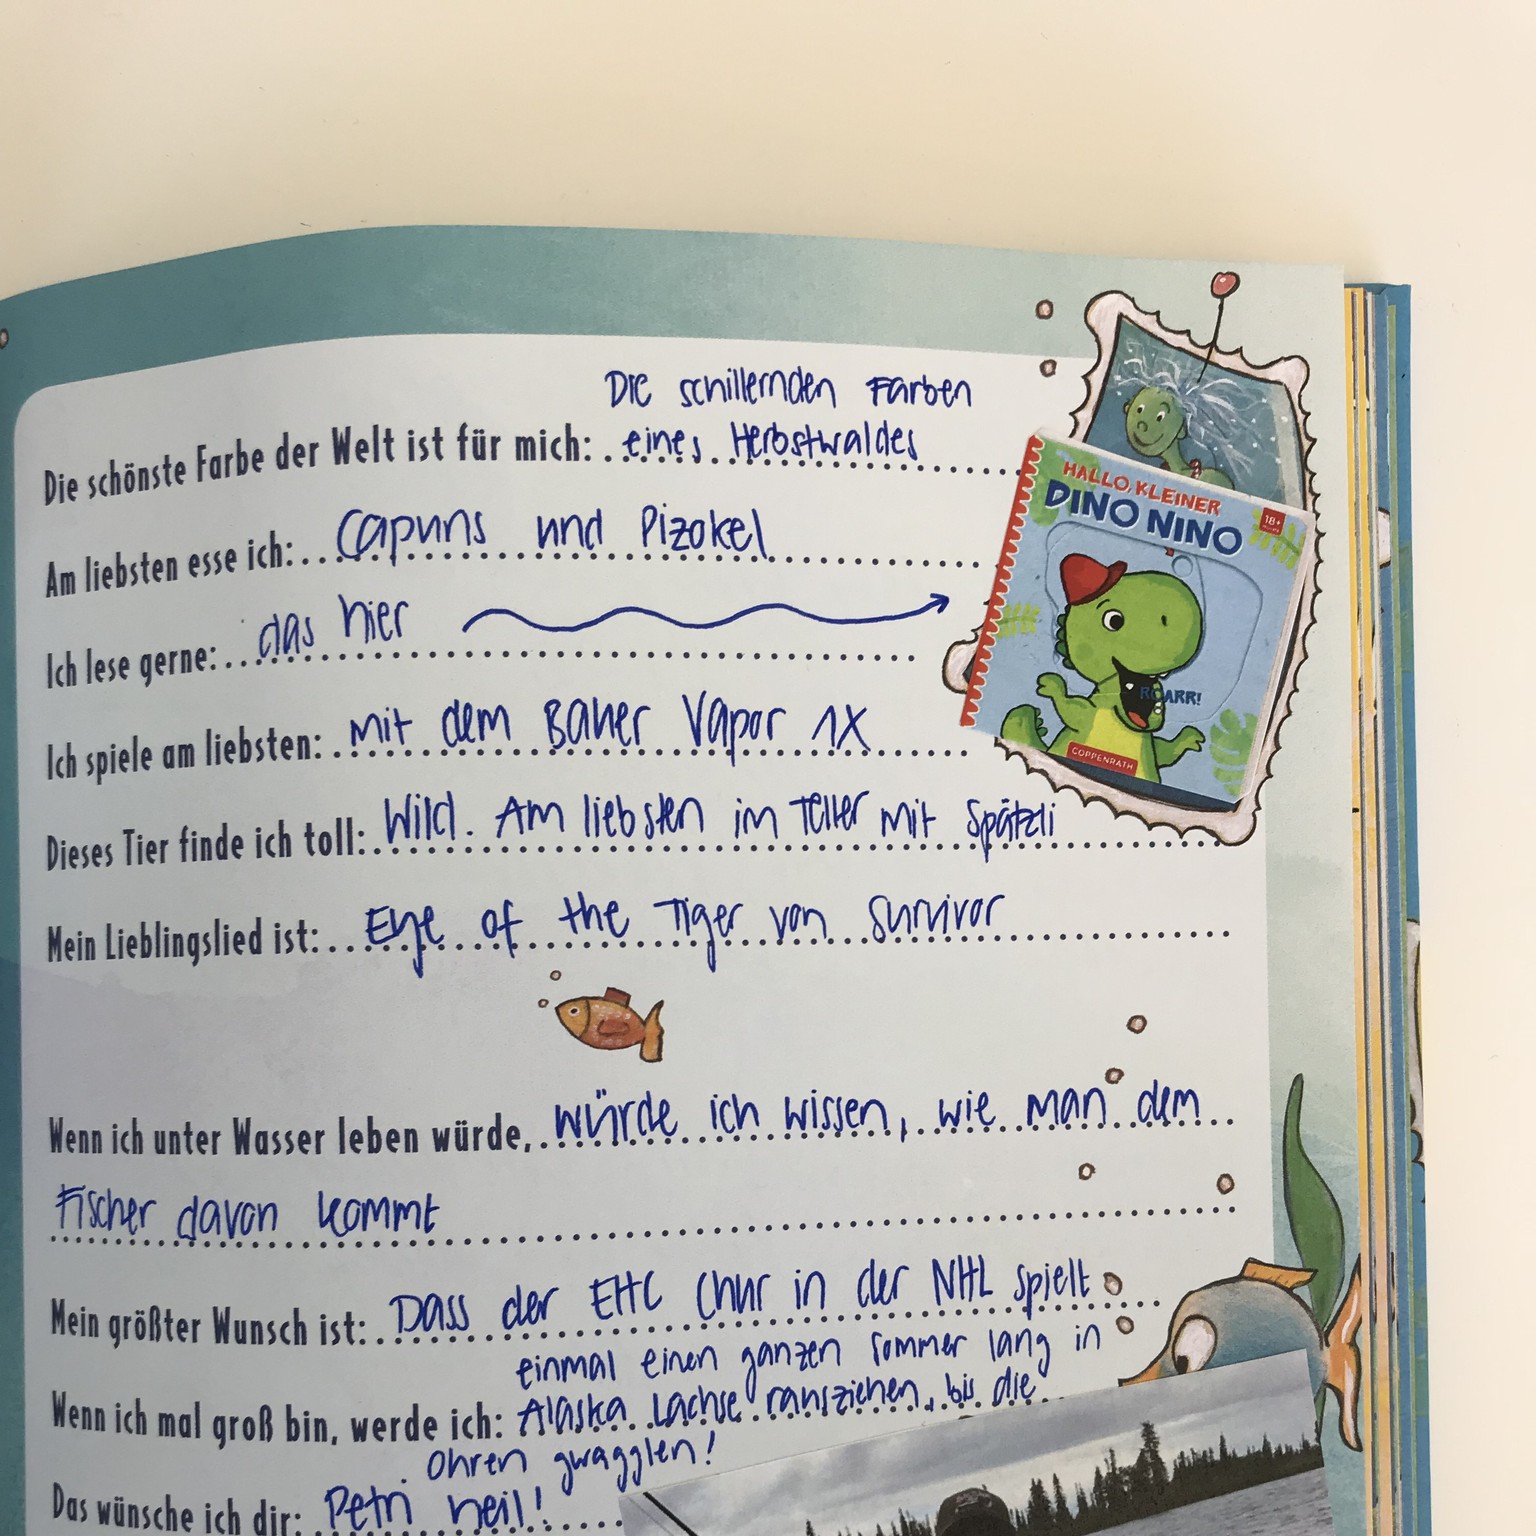 Die schillernden Farben
Die schönste Farbe der Welt ist für mich: eines Herbstwaldes
Am liebsten esse ich: Capuns und Pizokel
Ich lese gerne: das hier
HALLO, KLEINER
DINO NINO
18+
ROARR!
COPPENRATH
Ich spiele am liebsten: mit dem Bauer Vapor 1X
Dieses Tier finde ich toll: Wild. Am liebsten im Teller mit Spätzli
Mein Lieblingslied ist: Eye of the Tiger von Survivor
Wenn ich unter Wasser leben würde, würde ich wissen, wie man dem
Fischer davon kommt
Mein größter Wunsch ist: Dass der EHC Chur in der NHL spielt
einmal einen ganzen Sommer lang in
Wenn ich mal groß bin, werde ich: Alaska Lachse rausziehen, bis die
Ohren gwagglen!
Das wünsche ich dir: Petri heil!